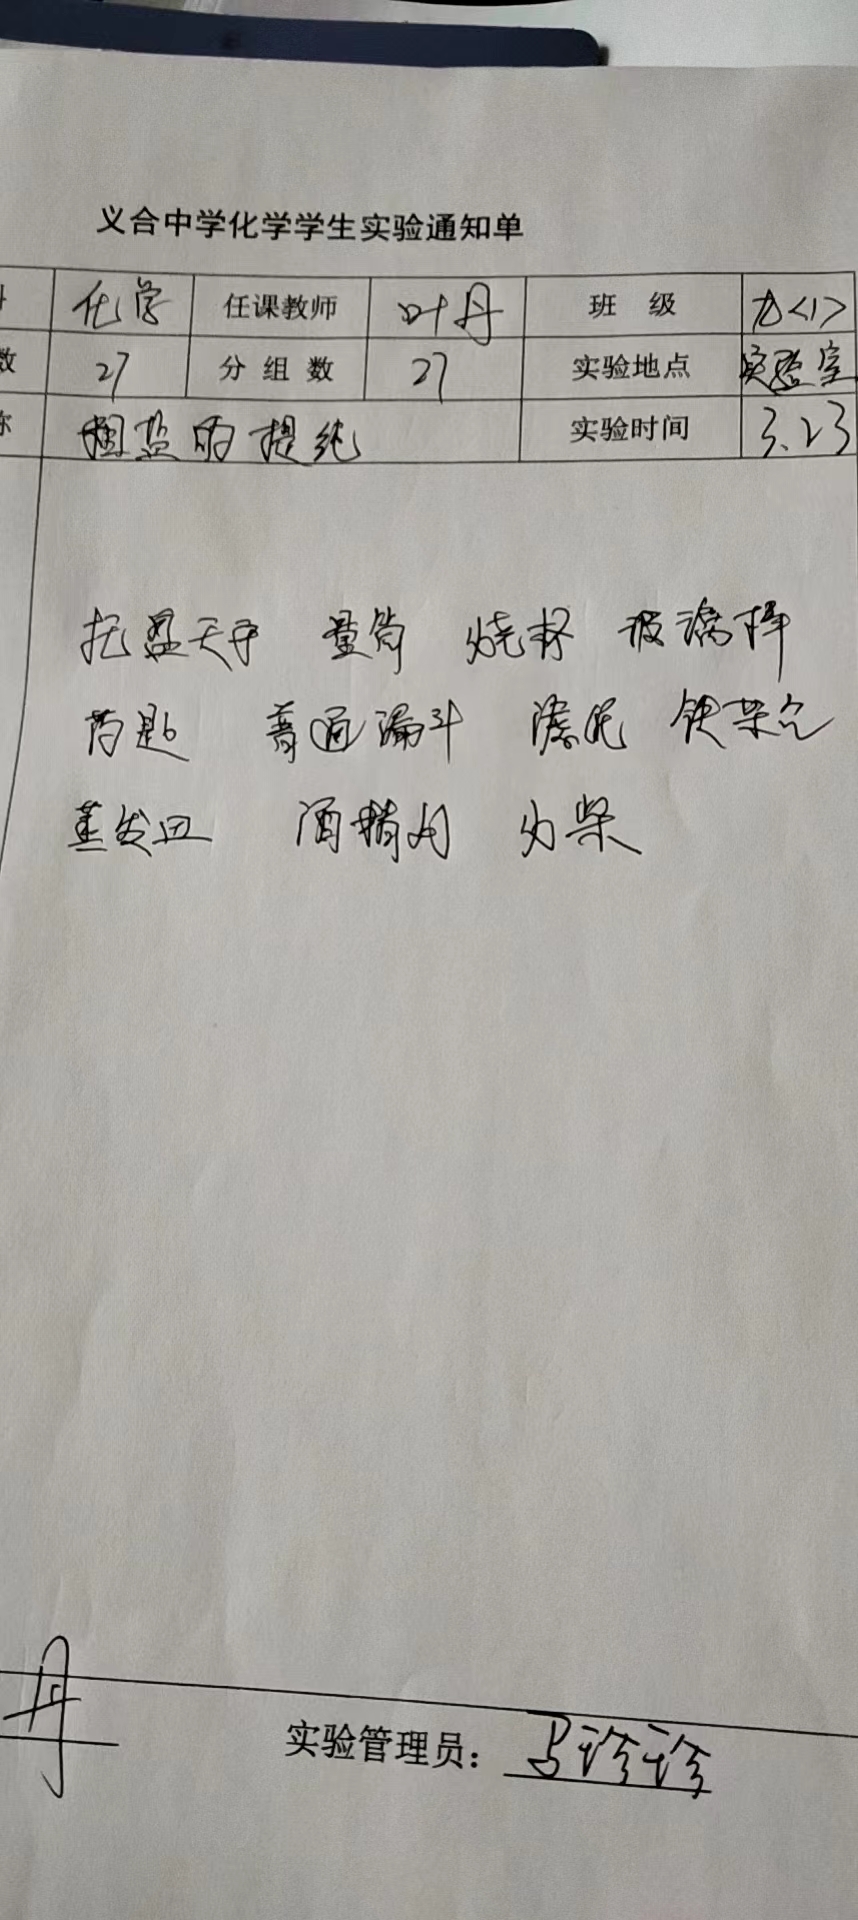 义合中学化学学生实验通知单
化学 任课教师 叶丹 班 级 九<1>
数 27 分 组 数 27 实验地点 实验室
称 粗盐的提纯 实验时间 3.23
托盘天平 量筒 烧杯 玻璃棒
药匙 普通漏斗 滤纸 铁架台
蒸发皿 酒精灯 火柴
丹 实验管理员： 马诊诊